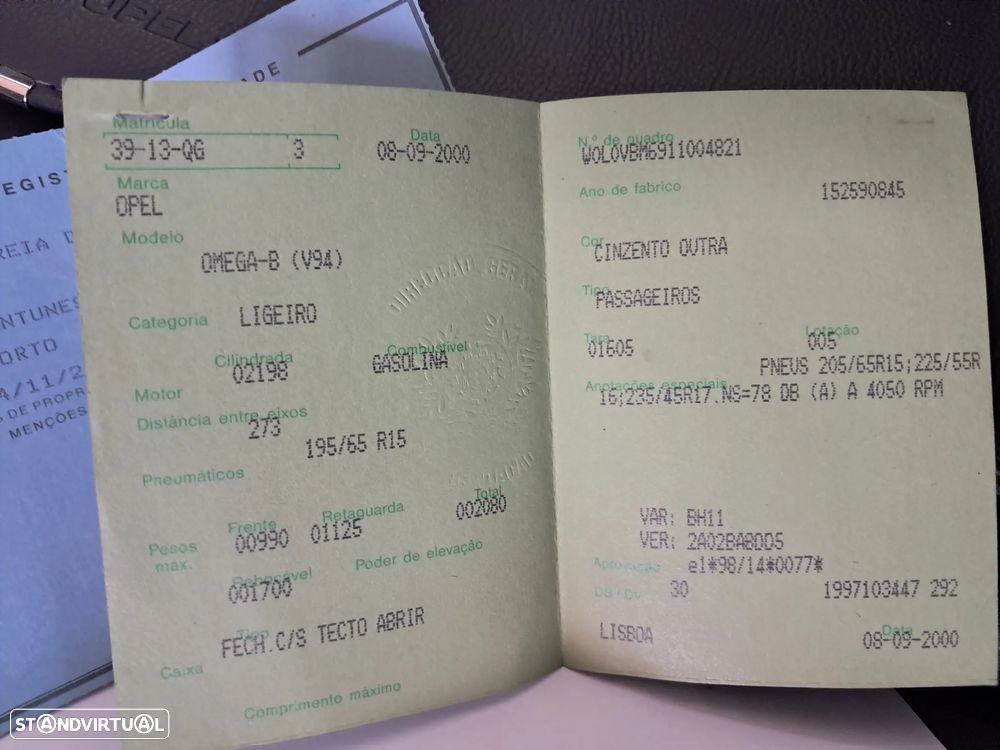 OPEL
ADE
EGIST
REIA D
NTUNES
ORTO
A/11/2
S DE PROPR
MENÇÕES
Matrícula
39-13-QG 3
Data
08-09-2000
Marca
OPEL
Modelo
OMEGA-B (V94)
Categoria LIGEIRO
Cilindrada Combustível
02198 GASOLINA
Motor
Distância entre eixos
273
195/65 R15
Pneumáticos
Frente Retaguarda Total
Pesos máx. 00990 01125 002080
Rebocável Poder de elevação
001700
Tipo
FECH.C/S TECTO ABRIR
Caixa
Comprimento máximo
N.º de quadro
WOLOVBM6911004821
Ano de fabrico 152590845
Cor
CINZENTO OUTRA
Tipo
PASSAGEIROS
Tara Lotação
01605 005
PNEUS 205/65R15;225/55R
Anotações especiais
16;235/45R17.NS=78 DB (A) A 4050 RPM
VAR: BH11
VER: 2A02BA8DD5
Aprovação e1*98/14*0077*
DS/Dv. 30 1997103447 292
LISBOA
Data
08-09-2000
DIRECÇÃO GERAL
STANDVIRTUAL